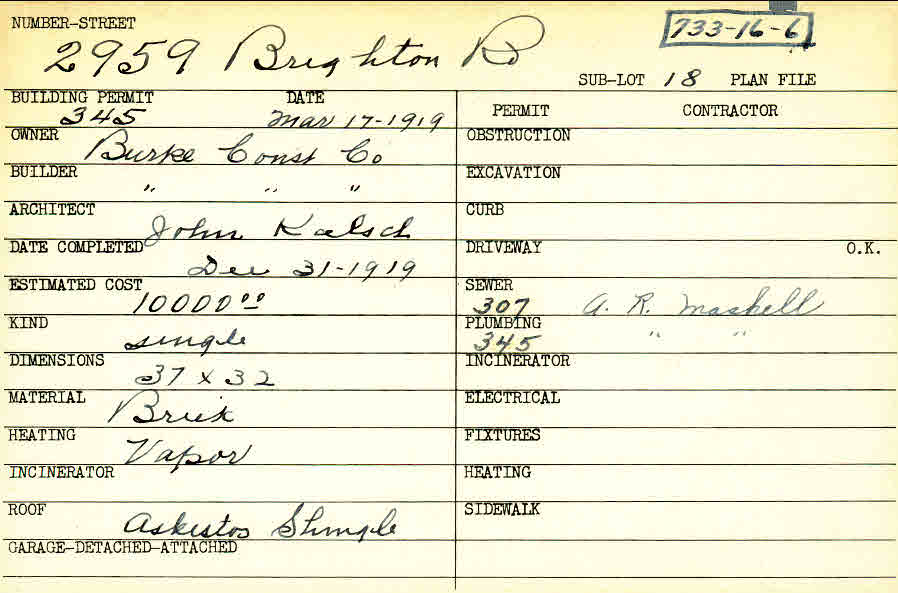 NUMBER-STREET
2959 Brighton Rd
733-16-6
SUB-LOT 18 PLAN FILE
BUILDING PERMIT DATE
345 Mar 17-1919
PERMIT CONTRACTOR
OWNER Burke Const Co
OBSTRUCTION
BUILDER " " "
EXCAVATION
ARCHITECT John Kalsch
CURB
DATE COMPLETED Dec 31-1919
DRIVEWAY O.K.
ESTIMATED COST 10000 00
SEWER 307 A. R. Maskell
KIND single
PLUMBING 345 " "
DIMENSIONS 37 x 32
INCINERATOR
MATERIAL Brick
ELECTRICAL
HEATING Vapor
FIXTURES
INCINERATOR
HEATING
ROOF Asbestos Shingle
SIDEWALK
GARAGE-DETACHED-ATTACHED